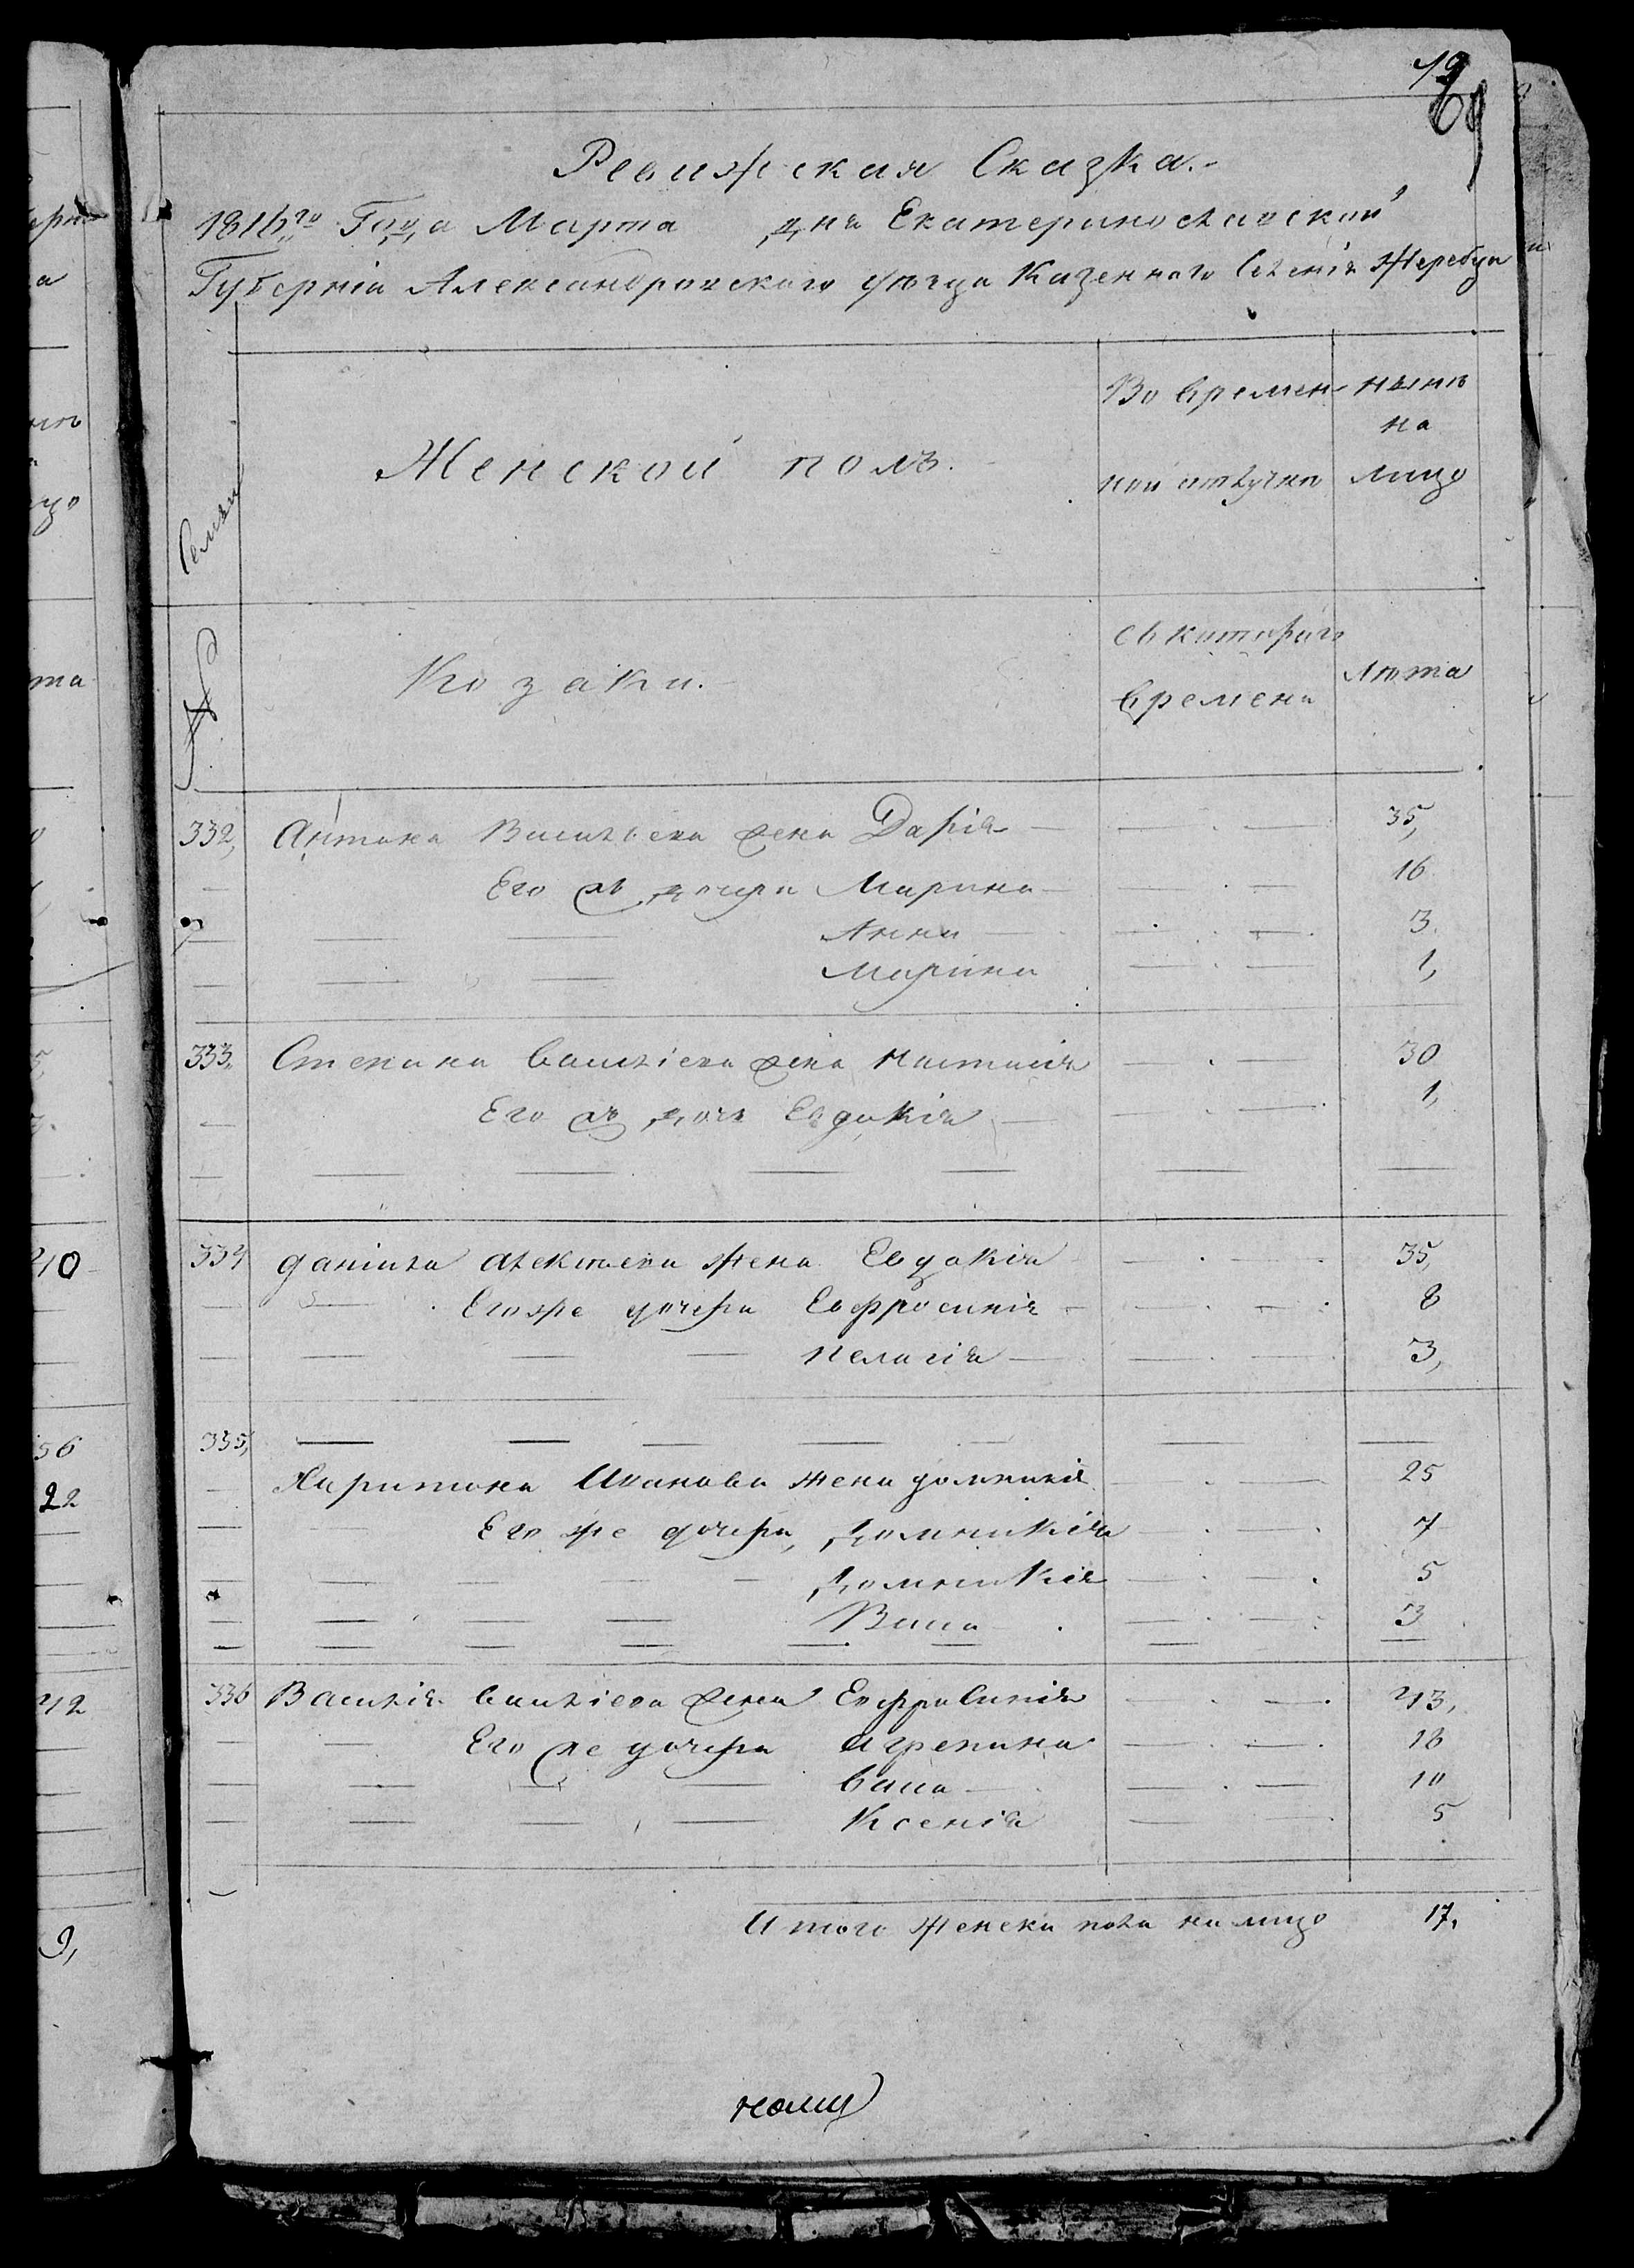 69
Ревижская Сказка.
1816го Года Марта дня Екатеринославской
Губерніи Александровского уѣзда Казенного Селенія Жеребца
Семьи
Женской полъ.
Во времен
ной отлучке
нынѣ
на
лицо
№
Козаки.
съ котораго
времени
Лѣта
332, Антона Васильева жена Дарія 35,
Его жъ дочери Марина 16
Анна 3.
Марина 1,
333, Степана Васильева жена Настасія 30
Его жъ дочь Евдокія 1,
334 Даніила Алексѣева жена Евдокія 35,
Его же дочери Евфросинія 8
Пелагія 3,
335,
Харитона Иванова жена Домникія 25
Его же дочери, Домникія 7
Домникія 5
Васа 3
336 Василія Васильева жена Евфросинія 43,
Его же дочери Агрепина 18
Васа 10
Ксенія 5
Итого женска пола на лицо 17,